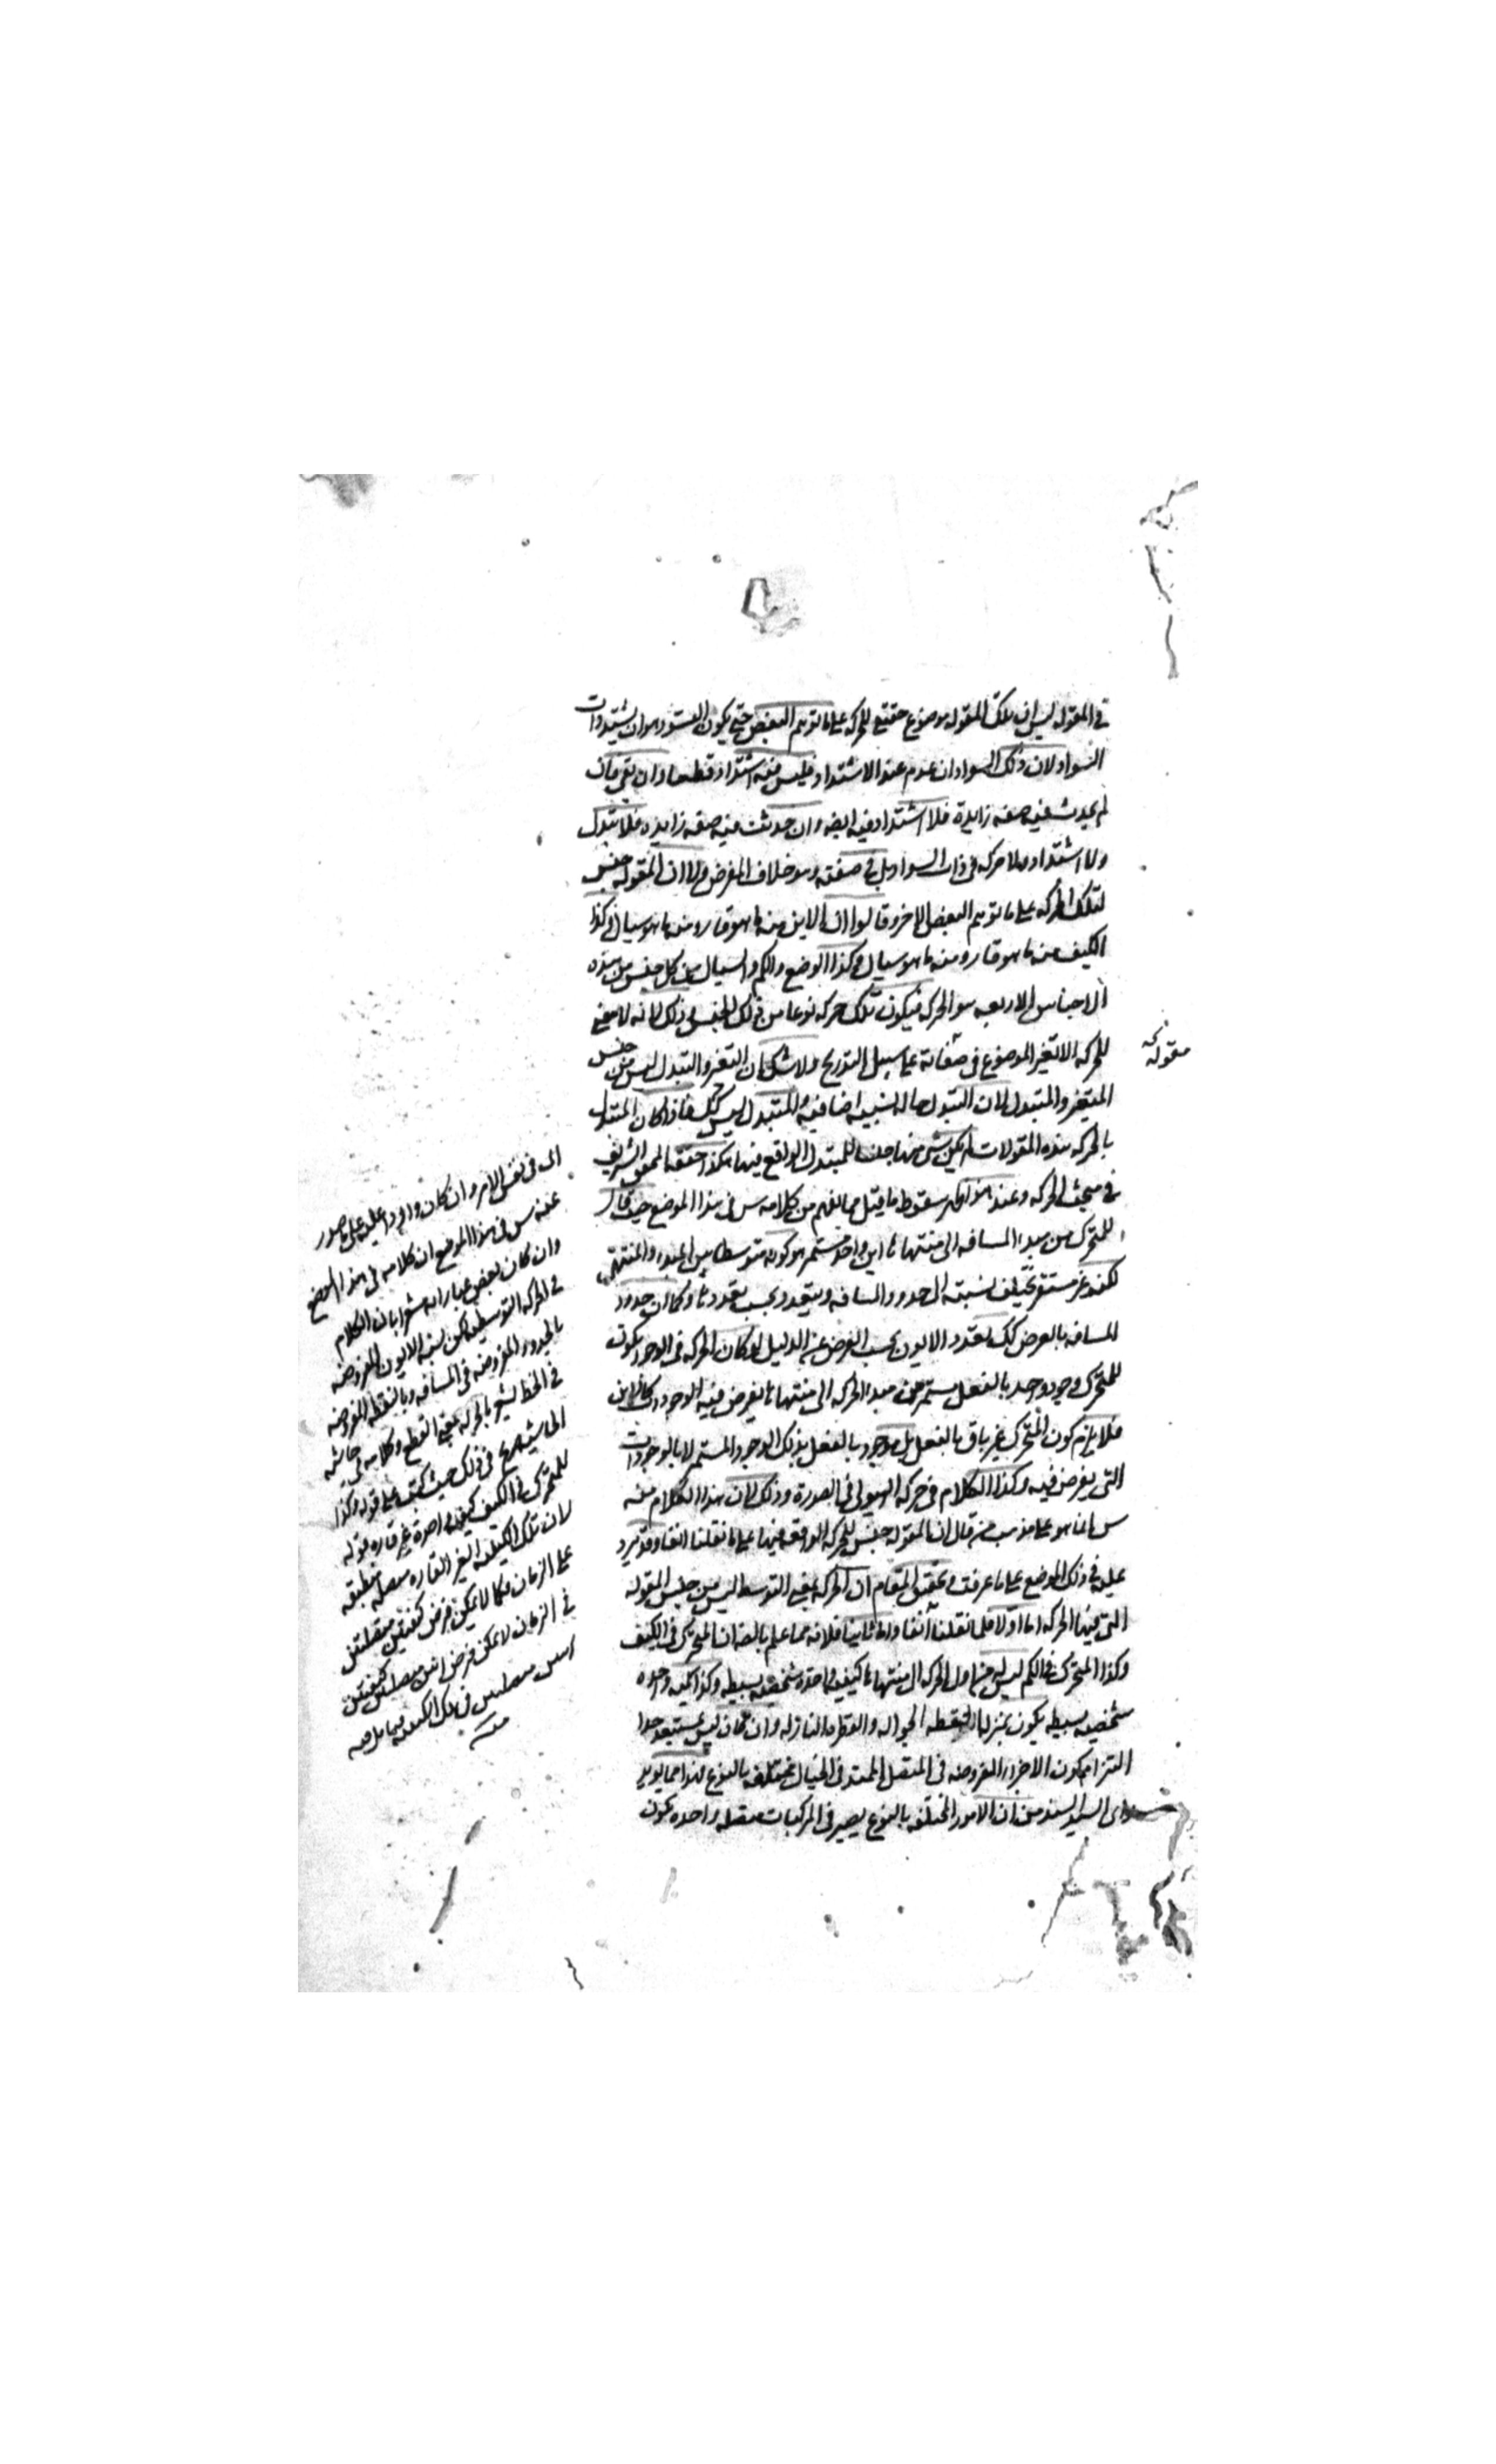 في المقوله ليس ان تلك المقوله موضوع حقيقي للحركه على ما توهم البعض حتى يكون التسود هو ان يشتد ذات
السواد لان ذلك السواد ان عدم عند الاشتداد فليس فيه اشتداد قطعا وان بقي فان
لم يحدث فيه صفه زايدة فلا اشتداد فيه ايضه وان حدثت فيه صفه زايده فلا تبدل
ولا اشتداد ولا حركه في ذات السواد بل في صفته وهو خلاف المفرض ولا ان المقوله جنس
لتلك الحركه على ما توهم البعض الاخر وقالوا ان الاين منه ما هو قار ومنه ما هو سيال وكذا
الكيف منه ما هو قار ومنه ما هو سيال وكذا الوضع والكم والسيال من كل جنس من هذه
الاجناس الاربعه هو الحركه فيكون تلك حركه نوعا من ذلك الجنس وذلك لانه لا معنى
للحركه الا تغير الموضوع في صفاته على سبيل التدريج ولا شك ان التغير والتبدل ليس من جنس
المتغير والمتبدل لان التبدل حاله نسبيه اضافيه والمتبدل ليس كك فاذا كان المتبدل
بالحركه هذه المقولات لم يكن شي منها جنسا للتبدل الواقع فيها هكذا حققه المحقق الشريف
في مبحث الحركه وعند هذا ظهر سقوط ما قيل مما يفهم من كلامه س في هذا الموضع حيث قال
للمتحرك من مبداء المسافه الى منتهاها اين واحد مستمر هو كونه متوسطا بين المبدء والمنتهى
لكنه غير مستقر يختلف نسبته الى حدود المسافه ويتعدد بحسب تعددها وكما ان حدود
المسافه بالعرض كك تعدد الايون بحسب الفرض من الدليل لو كان الحركه في الوجود يكون
للمتحرك وجود واحد بالفعل مستمر من مبدء الحركه الى منتهاها يفرض فيه الوجودات كالاين
فلا يلزم كون المتحرك غير باق بالفعل بل موجود بالفعل بذلك الوجود المستمر لا بالوجودات
التي يفرض فيه وكذا الكلام في حركه الهيولى في الصورة وذلك لان هذا الكلام منه
س انما هو على مذهب من قال ان المقوله جنس للحركه الواقعه فيها على ما نقلنا انفا وقد يرد
عليه في ذلك الموضع على ما عرفت في تحقيق المقام ان الحركه بمعنى التوسط ليس من جنس المقوله
التي فيها الحركه اما اولا فلما نقلنا آنفا واما ثانيا فلانه مما علم بالضه ان المتحرك في الكيف
وكذا المتحرك في الكم ليس له من اول الحركه الى منتهاها كيفيه واحده شخصيه بسيطه وكذا كميه واحده
شخصيه بسيطه يكون بمنزله النقطه الجواله والقطره النازله وان كان ليس يستبعد جدا
التزام كون الاجزاء المفروضه في المتصل الممتد في الخيال مختلفه بالنوع لهذا مما يويد
راى السيد السند من ان الامور المختلفه بالنوع يصير في المركبات متصله واحده يكون
مقوله
الى في نفس الامر وان كان واردا عليه على صور
عنه س في هذا الموضع ان كلامه في هذا الموضع
وان كان بعض عباراته مشعرا بان الكلام
في الحركه التوسطيه لكن نسبه الايون المفروضه
بالحدود المفروضه في المسافه وبالنقطه المفروضه
في الخط يشعر بالحركه بمعنى القطع وكلامه في حاشيه
الحاشيه صريح في ذلك حيث كتب على قوله وكذا
للمتحرك في الكيف كيفيه واحدة غير قاره قوله
لان تلك الكيفيه الغير القاره متصله منطبقه
على الزمان فكما لا يمكن فرض كيفيتين متصلتين
في الزمان لا يمكن فرض